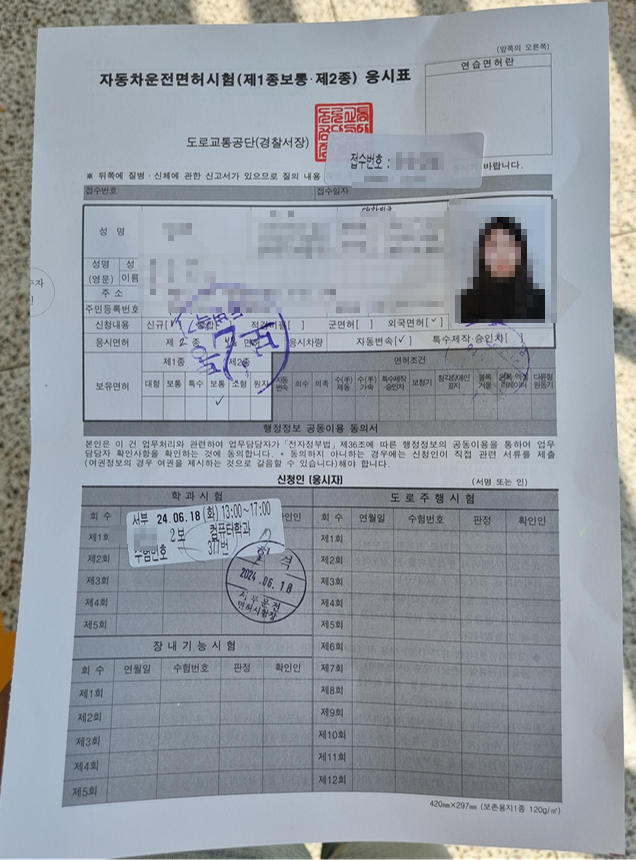 (앞쪽의 오른쪽)
자동차운전면허시험(제1종보통·제2종) 응시표
연습면허란
도로교통공단(경찰서장)
접수번호 :
※ 뒤쪽에 질병·신체에 관한 신고서가 있으므로 질의 내용 바랍니다.
접수번호 접수일자
성 명
성명 성
(영문) 이름
주 소
주민등록번호
신청내용 신규[ 군면허[ ] 외국면허[✓]
응시면허 제 2 종 면허 응시차량 자동변속[✓] 특수제작·승인차[ ]
보유면허 제1종 제2종 면허조건
대형 보통 특수 보통 소형 원자 자동변속 의수 의족 수(手)제동 수(手)가속 특수제작·승인차 보청기 청각장애인표지 볼록거울
✓
행정정보 공동이용 동의서
본인은 이 건 업무처리와 관련하여 업무담당자가 「전자정부법」 제36조에 따른 행정정보의 공동이용을 통하여 업무
담당자 확인사항을 확인하는 것에 동의합니다. * 동의하지 아니하는 경우에는 신청인이 직접 관련 서류를 제출
(여권정보의 경우 여권을 제시하는 것으로 갈음할 수 있습니다)해야 합니다.
신청인 (응시자) (서명 또는 인)
학과시험
회 수 확인인
서부 24.06.18 (화) 13:00~17:00
2보 컴퓨터학과
수험번호 377번
제1회
제2회
제3회
제4회
제5회
합격
2024.06.18
서부운전
면허시험장
도로주행시험
회 수 연월일 수험번호 판정 확인인
제1회
제2회
제3회
제4회
제5회
제6회
제7회
제8회
제9회
제10회
제11회
제12회
장내기능시험
회 수 연월일 수험번호 판정 확인인
제1회
제2회
제3회
제4회
제5회
420㎜×297㎜ (보존용지1종 120g/㎡)